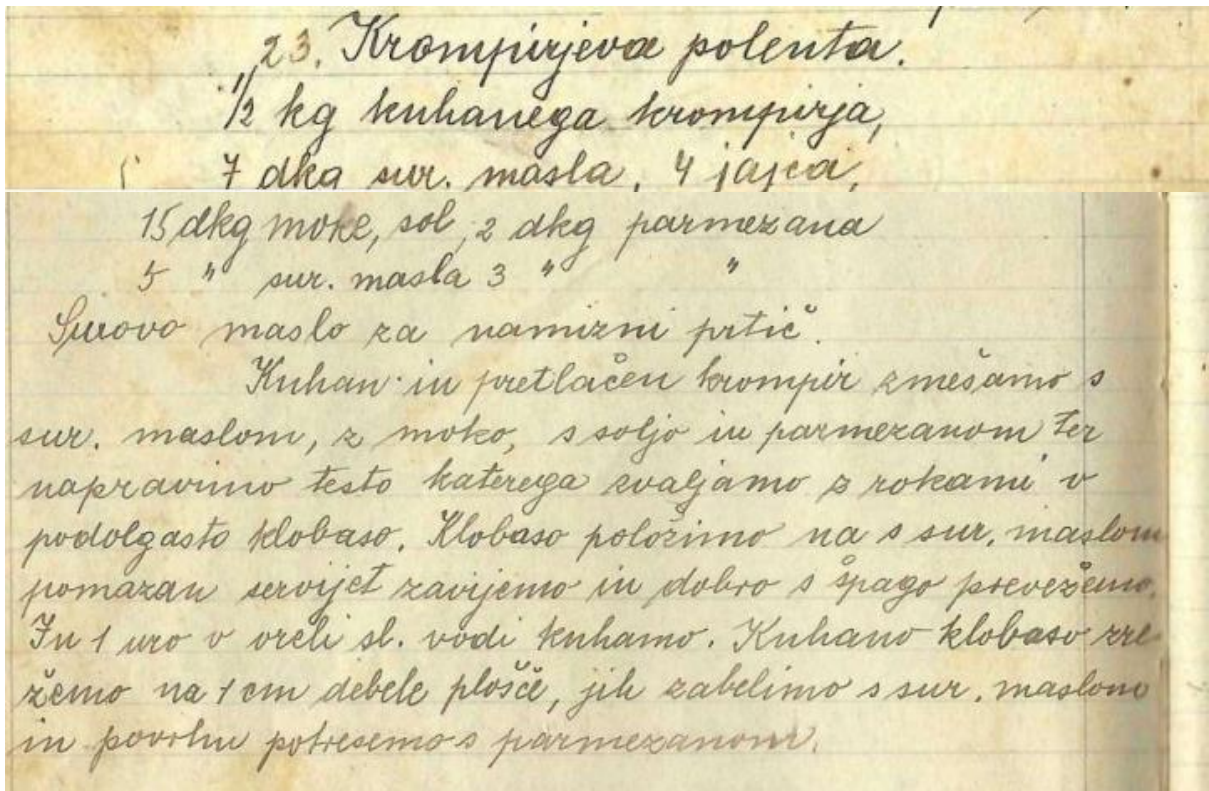 23. Krompirjeva polenta.
1/2 kg kuhanega krompirja,
7 dkg sur. masla, 4 jajca,
15 dkg moke, sol, 2 dkg parmezana
5 " sur. masla 3 " "
Surovo maslo za namizni prtič.
Kuhan in pretlačen krompir zmešamo s
sur. maslom, z moko, s soljo in parmezanom ter
napravimo testo katerega zvaljamo z rokami v
podolgasto klobaso. Klobaso položimo na s sur. maslom
pomazan servijet zavijemo in dobro s špago prevežemo.
In 1 uro v vreli sl. vodi kuhamo. Kuhano klobaso zre-
žemo na 1 cm debele plošče, jih zabelimo s sur. maslom
in povrhu potresemo s parmezanom.